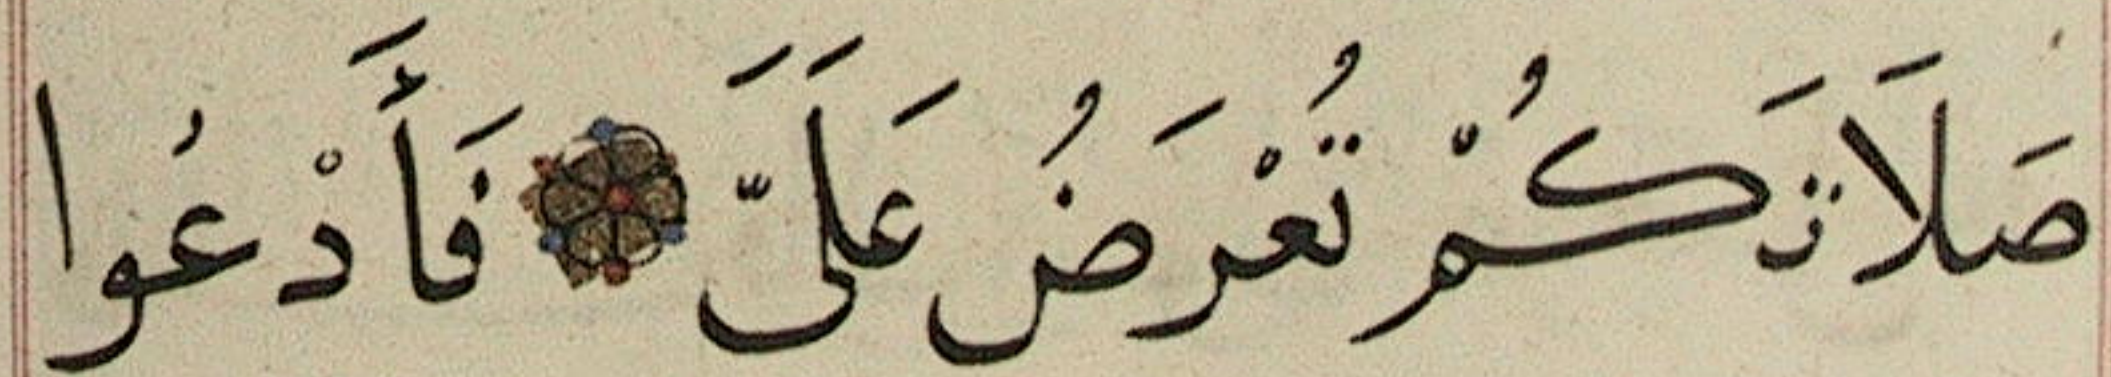 صَلَاتَكُمْ تُعْرَضُ عَلَىَّ فَأَدْعُوا